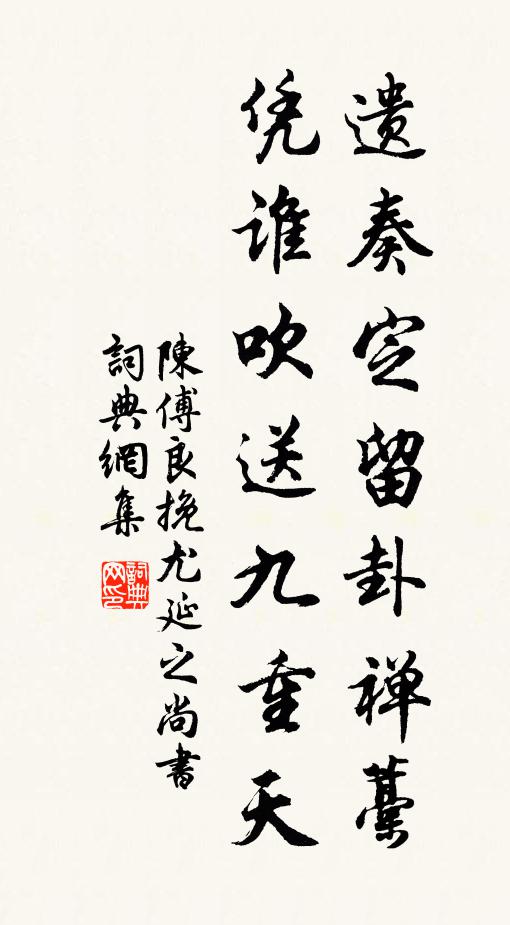 遗奏定留卦禅藁
凭谁吹送九重天
陳傅良挽尤延之尚書
詞典網集
詞典
网印